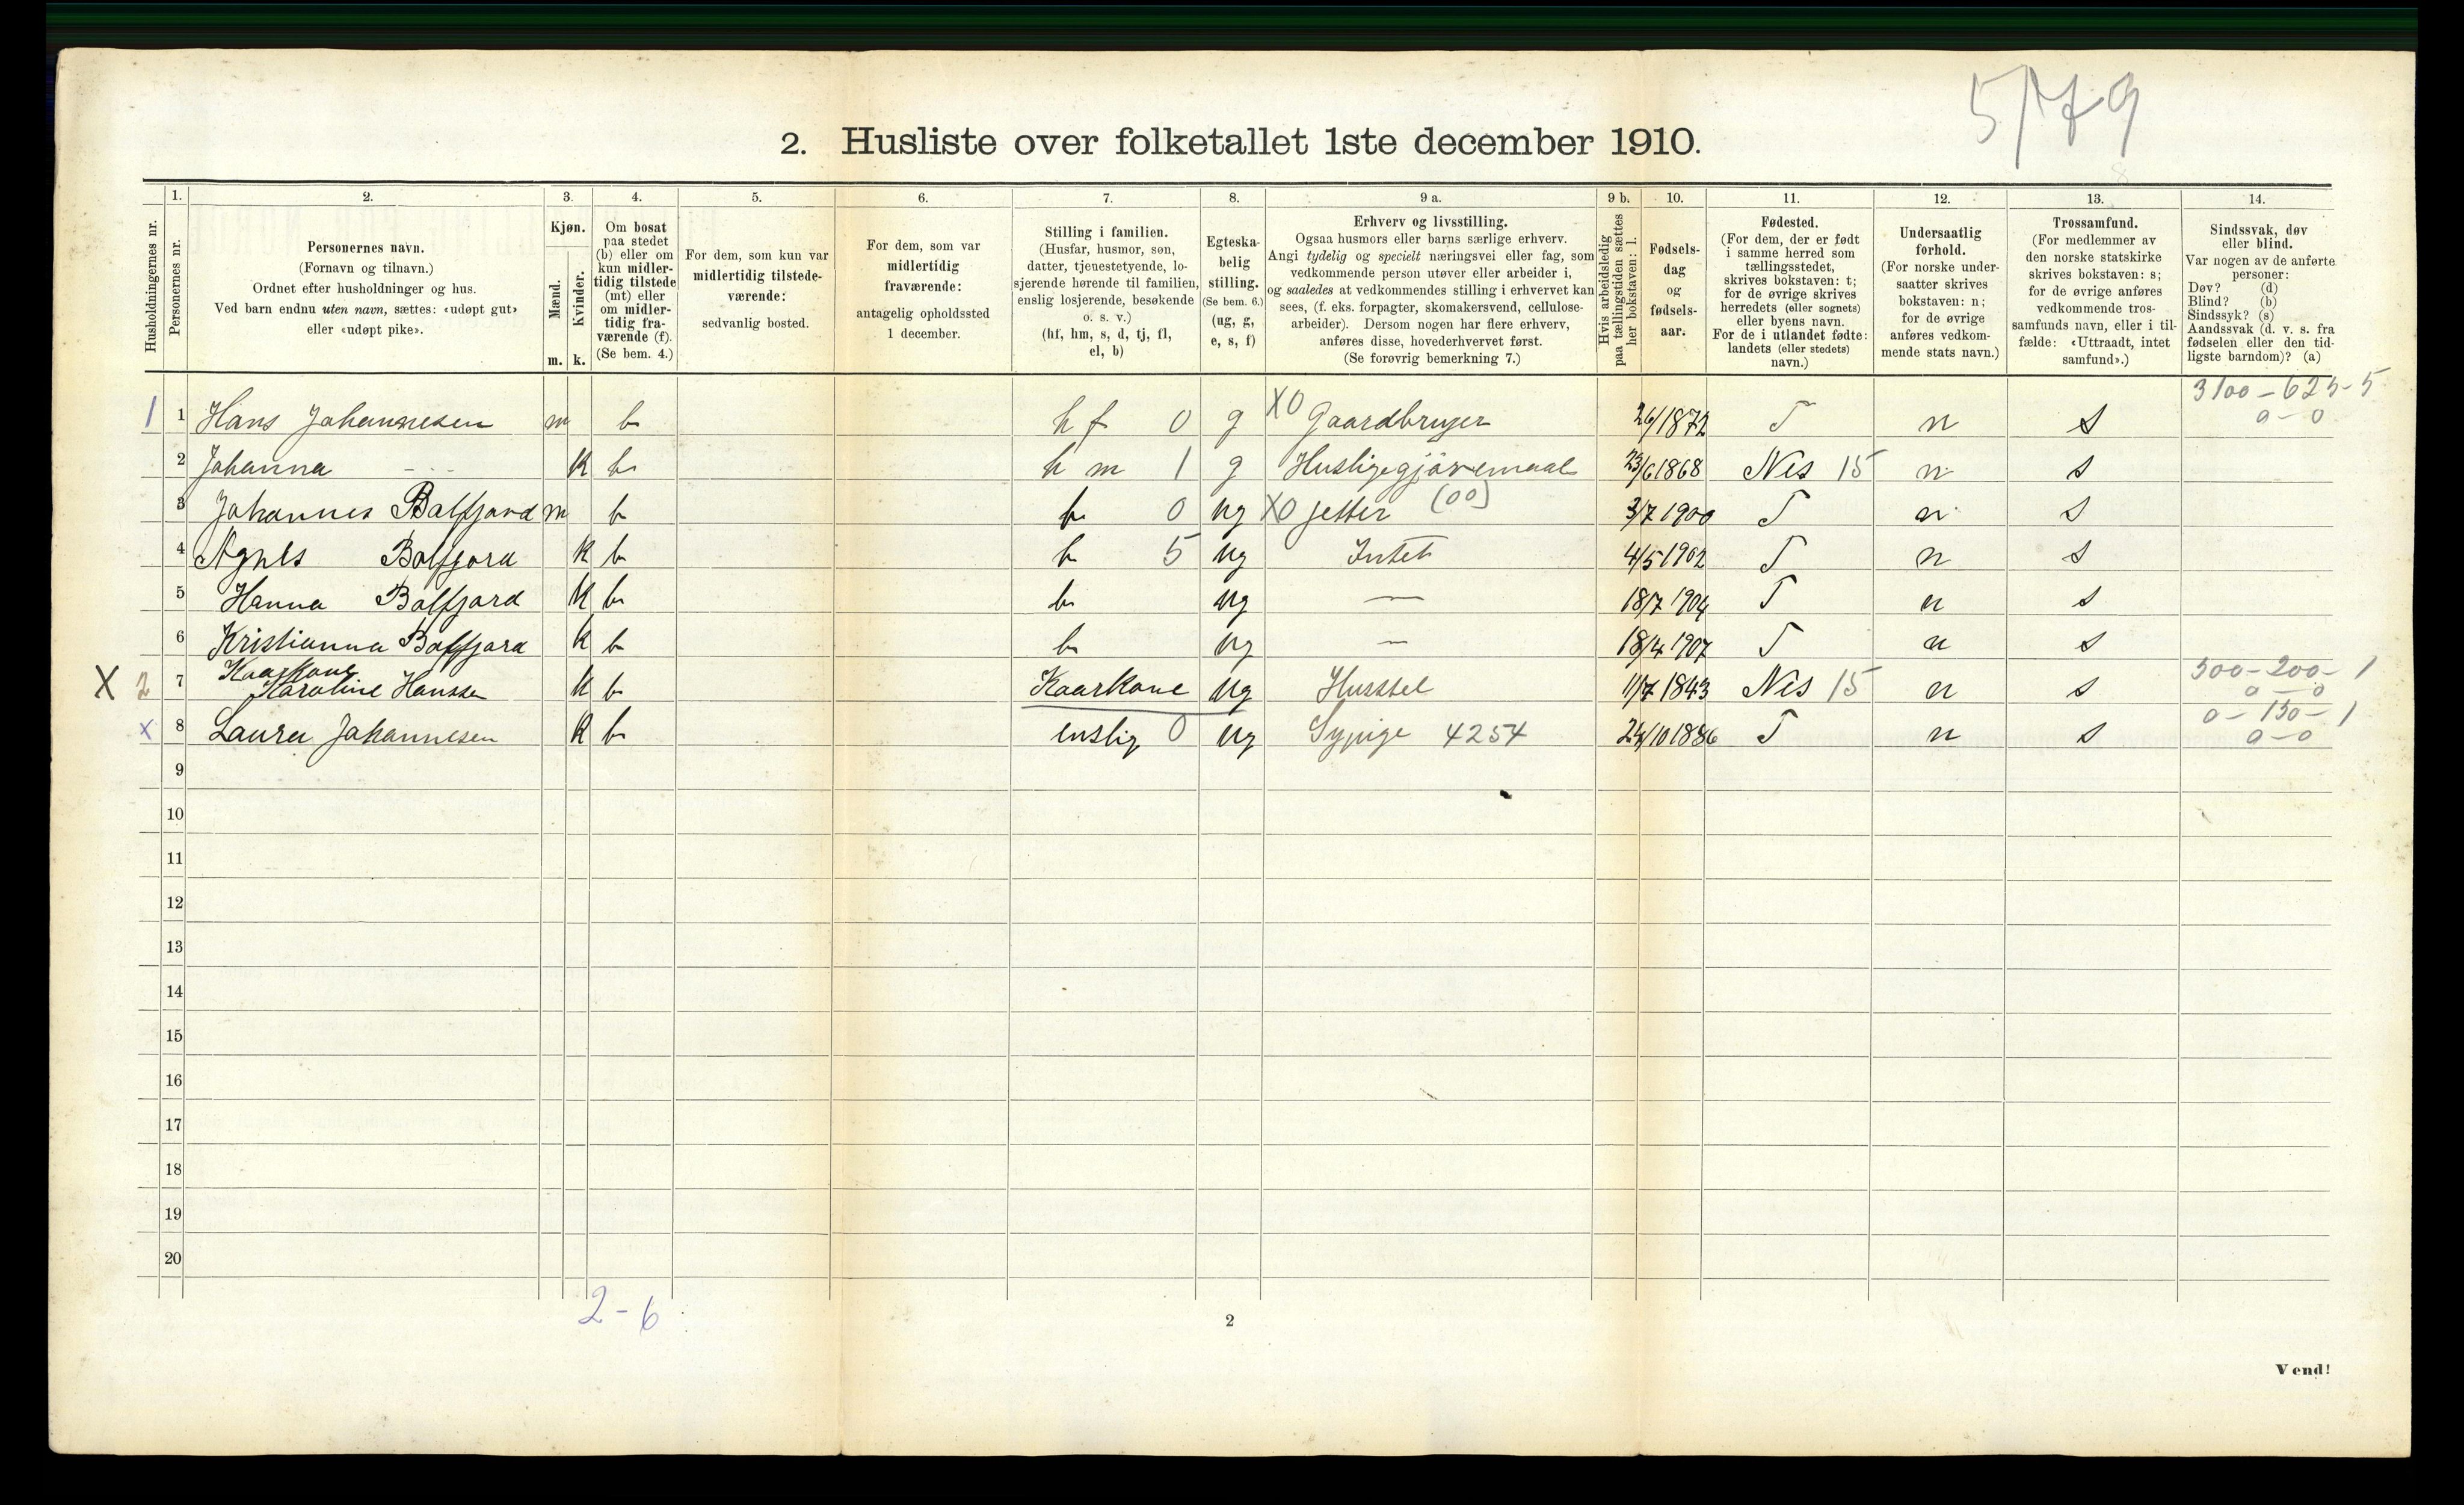 5/79
8
2. Husliste over folketallet 1ste december 1910.
Husholdningernes nr.
1.
Personernes nr.
2.
Personernes navn.
(Fornavn og tilnavn.)
Ordnet efter husholdninger og hus.
Ved barn endnu uten navn, sættes: «udøpt gut»
eller «udøpt pike».
3.
Kjøn.
Mænd.
Kvinder.
m. k.
4.
Om bosat
paa stedet
(b) eller om
kun midler-
tidig tilstede
(mt) eller
om midler-
tidig fra-
værende (f).
(Se bem. 4.)
5.
For dem, som kun var
midlertidig tilstede-
værende:
sedvanlig bosted.
6.
For dem, som var
midlertidig
fraværende:
antagelig opholdssted
1 december.
7.
Stilling i familien.
(Husfar, husmor, søn,
datter, tjenestetyende, lo-
sjerende hørende til familien,
enslig losjerende, besøkende
o. s. v.)
(hf, hm, s, d, tj, fl,
el, b)
8.
Egteska-
belig
stilling.
(Se bem. 6.)
(ug, g,
e, s, f)
9 a.
Erhverv og livsstilling.
Ogsaa husmors eller barns særlige erhverv.
Angi tydelig og specielt næringsvei eller fag, som
vedkommende person utøver eller arbeider i,
og saaledes at vedkommendes stilling i erhvervet kan
sees, (f. eks. forpagter, skomakersvend, cellulose-
arbeider). Dersom nogen har flere erhverv,
anføres disse, hovederhvervet først.
(Se forøvrig bemerkning 7.)
9 b.
Hvis arbeidsledig
paa tællingstiden sættes
her bokstaven: l.
10.
Fødsels-
dag
og
fødsels-
aar.
11.
Fødested.
(For dem, der er født
i samme herred som
tællingsstedet,
skrives bokstaven: t;
for de øvrige skrives
herredets (eller sognets)
eller byens navn.
For de i utlandet fødte:
landets (eller stedets)
navn.)
12.
Undersaatlig
forhold.
(For norske under-
saatter skrives
bokstaven: n;
for de øvrige
anføres vedkom-
mende stats navn.)
13.
Trossamfund.
(For medlemmer av
den norske statskirke
skrives bokstaven: s;
for de øvrige anføres
vedkommende tros-
samfunds navn, eller i til-
fælde: «Uttraadt, intet
samfund».)
14.
Sindssvak, døv
eller blind.
Var nogen av de anførte
personer:
Døv? (d)
Blind? (b)
Sindssyk? (s)
Aandssvak (d. v. s. fra
fødselen eller den tid-
ligste barndom)? (a)
3100-625-5
1 1 Hans Johannesen m b hf 0 g X0 Gaardbruger 26/1872 T n s 0-0
2 Johanna -"- k b hm 1 g Husligegjøremaal 23/6 1868 Nes 15 n s
3 Johannes Balfjord m b b 0 ug X0 jetter (00) 3/7 1900 T n s
4 Agnes Balfjord k b b 5 ug Intet 4/5 1902 T n s
5 Hanna Balfjord k b b ug — 18/7 1904 T n s
6 Kristianna Balfjord k b b ug — 18/4 1907 T n s
Kaarkone 300-200-1
X 2 7 Karoline Hanssen k b Kaarkone ug Husstel 11/7 1843 Nes 15 n s 0-0
0-150-1
x 8 Laura Johannesen k b enslig 0 ug Sypige 4254 24/10 1886 T n s 0-0
9
10
11
12
13
14
15
16
17
18
19
20
2-6
2
Vend!